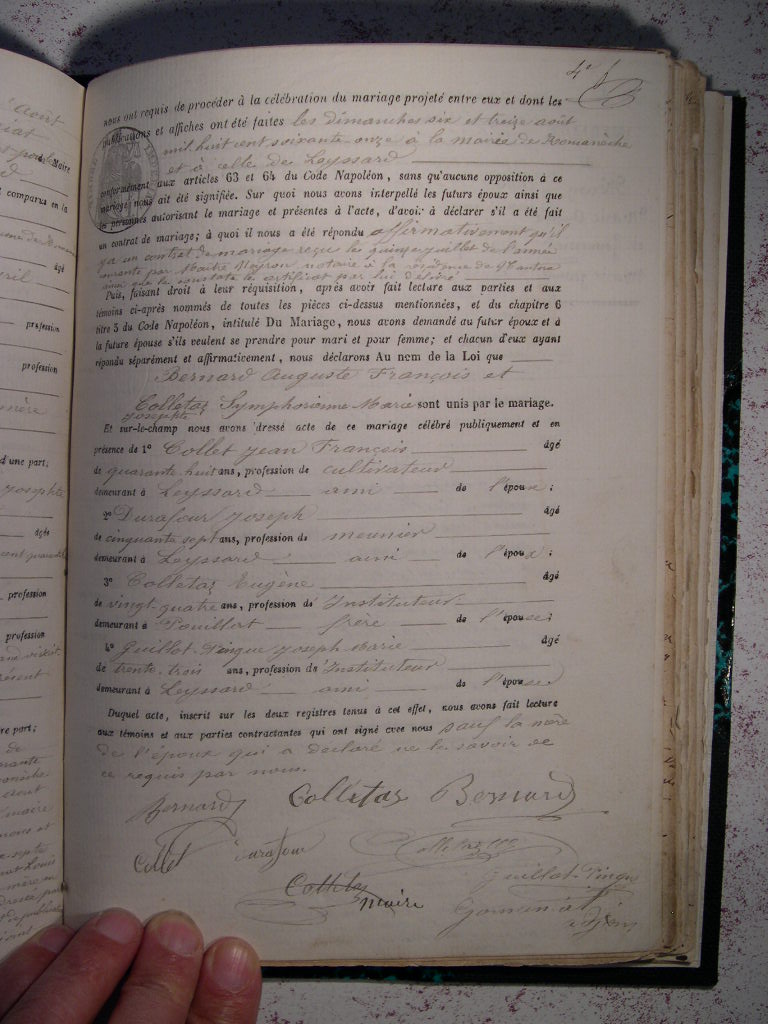 4e
nous ont requis de procéder à la célébration du mariage projeté entre eux et dont les
publications et affiches ont été faites les dimanches six et treize août
mil huit cent soixante onze à la mairie de Romanèche
et à celle de Leyssard
conformément aux articles 63 et 64 du Code Napoléon, sans qu'aucune opposition à ce
mariage nous ait été signifiée. Sur quoi nous avons interpellé les futurs époux ainsi que
les personnes autorisant le mariage et présentes à l'acte, d'avoir à déclarer s'il a été fait
un contrat de mariage; à quoi il nous a été répondu affirmativement qu'il
y a un contrat de mariage reçu le quinze juillet de l'année
courante par Maître notaire à la résidence de
ainsi que le constate le certificat par lui délivré
Puis, faisant droit à leur réquisition, après avoir fait lecture aux parties et aux
témoins ci-après nommés de toutes les pièces ci-dessus mentionnées, et du chapitre 6
titre 5 du Code Napoléon, intitulé Du Mariage, nous avons demandé au futur époux et à
la future épouse s'ils veulent se prendre pour mari et pour femme; et chacun d'eux ayant
répondu séparément et affirmativement, nous déclarons Au nom de la Loi que
Bernard Auguste François et
Colletaz Symphorienne Marie sont unis par le mariage.
Josephte
Et sur-le-champ nous avons dressé acte de ce mariage célébré publiquement et en
présence de 1° Collet Jean François âgé
de quarante huit ans, profession de cultivateur
demeurant à Leyssard ami de l'époux;
2° Durafour Joseph âgé
de cinquante sept ans, profession de meunier
demeurant à Leyssard ami de l'époux;
3° Colletaz Eugène âgé
de vingt-quatre ans, profession de Instituteur
demeurant à Pouillat frère de l'épouse;
4° Guillot Pingue Joseph Marie âgé
de trente trois ans, profession de Instituteur
demeurant à Leyssard ami de l'épouse
Duquel acte, inscrit sur les deux registres tenus à cet effet, nous avons fait lecture
aux témoins et aux parties contractantes qui ont signé avec nous sauf la mère
de l'époux qui a déclaré ne le savoir de
ce requis par nous.
Bernard Colletaz Bernard
Collet Durafour Colletaz
Guillot-Pingue
Colletaz
maire